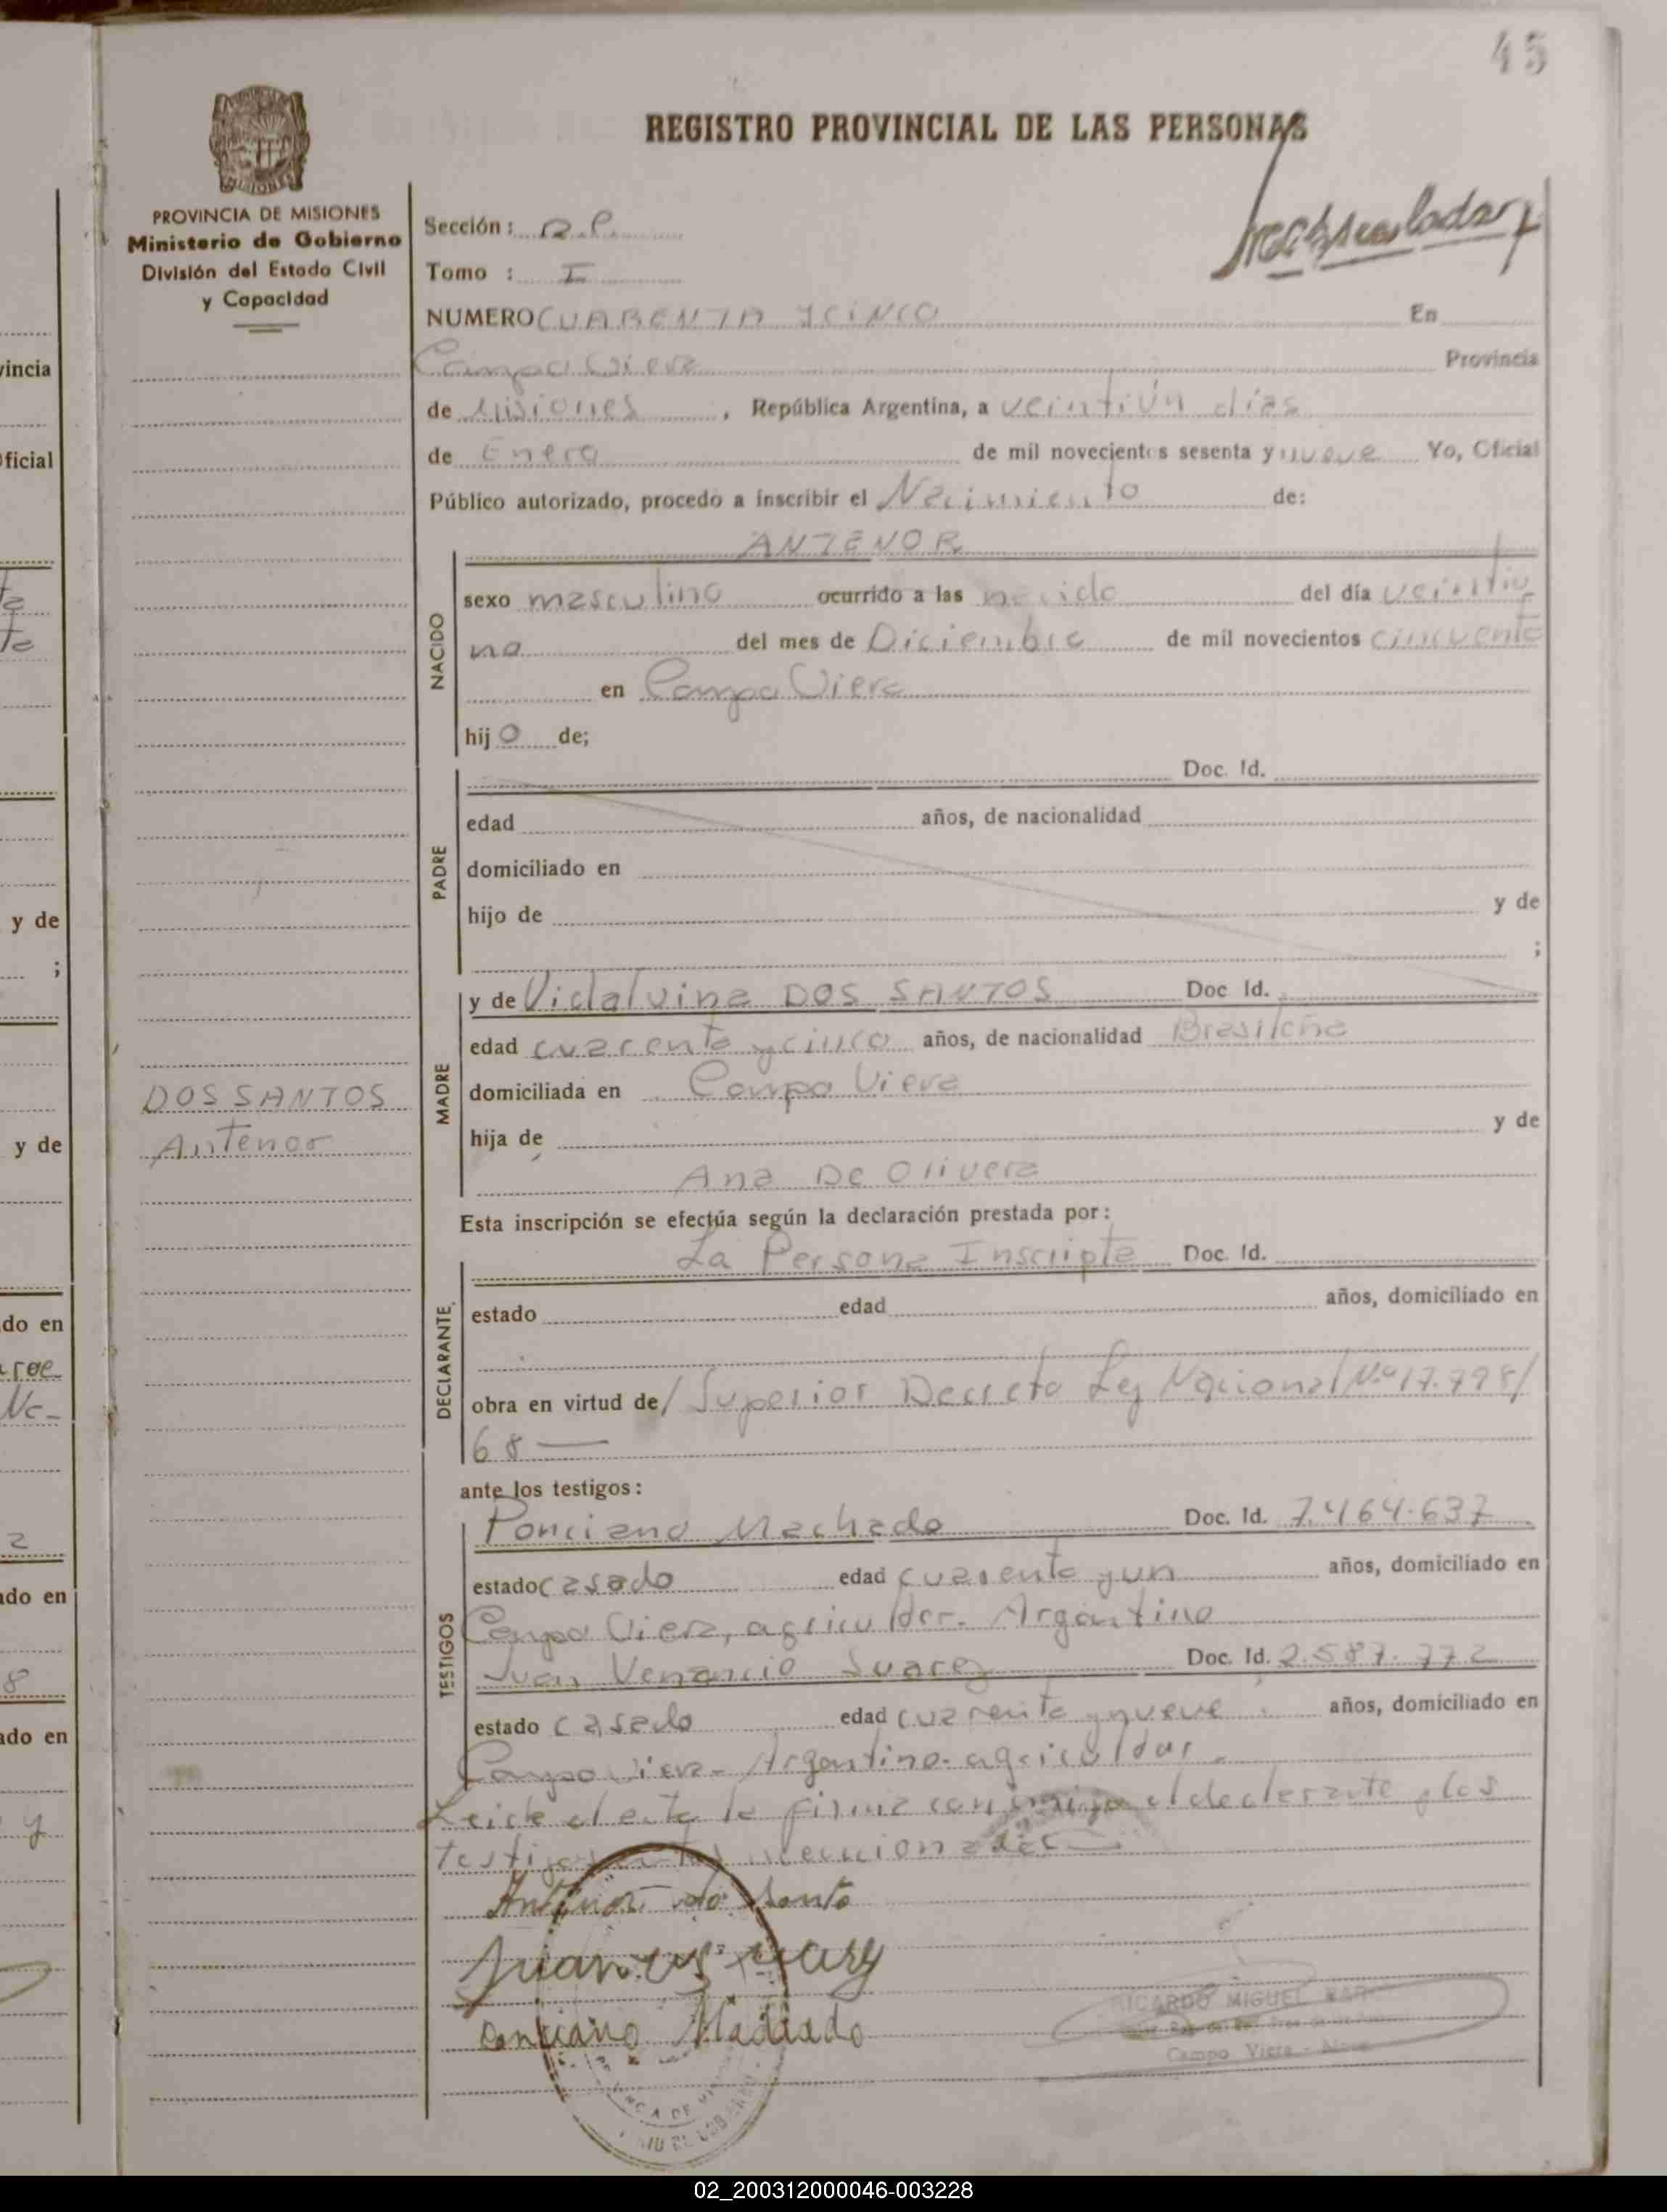 45
REGISTRO PROVINCIAL DE LAS PERSONAS
PROVINCIA DE MISIONES
Ministerio de Gobierno
División del Estado Civil
y Capacidad
Sección:
Tomo : I
NUMERO CUARENTA Y CINCO En
Campo Viera Provincia
de Misiones, República Argentina, a veintiún días
de Enero de mil novecientos sesenta y nueve Yo, Oficial
Público autorizado, procedo a inscribir el Nacimiento de:
ANTENOR
NACIDO
sexo masculino ocurrido a las nacido del día veintiu
no del mes de Diciembre de mil novecientos cincuenta
en Campo Viera
hijo de;
PADRE
Doc. Id.
edad años, de nacionalidad
domiciliado en
hijo de y de
;
MADRE
y de Vidalvina DOS SANTOS Doc Id.
edad cuarenta y cinco años, de nacionalidad Brasileña
domiciliada en Campo Viera
hija de y de
Ana De Olivera
DOS SANTOS
Antenor
Esta inscripción se efectúa según la declaración prestada por:
DECLARANTE
La Persona Inscripta Doc. Id.
estado edad años, domiciliado en
obra en virtud de/ Superior Decreto Ley Nacional Nº 17.798/
68
ante los testigos:
TESTIGOS
Ponciano Machado Doc. Id. 7.464.637
estado casado edad cuarenta y un años, domiciliado en
Campo Viera, agricultor. Argentino
Juan Venancio Suarez Doc. Id. 2.587.772
estado casado edad cuarenta y nueve años, domiciliado en
Campo Viera - Argentino - agricultor.
Leida el acta la firma conmigo el declarante y los
testigos
Antenor do Santo
Ponciano Machado
RICARDO MIGUEL
Campo Viera
vincia
Oficial
y de
;
y de
do en
ado en
8
ado en
y
02_200312000046-003228